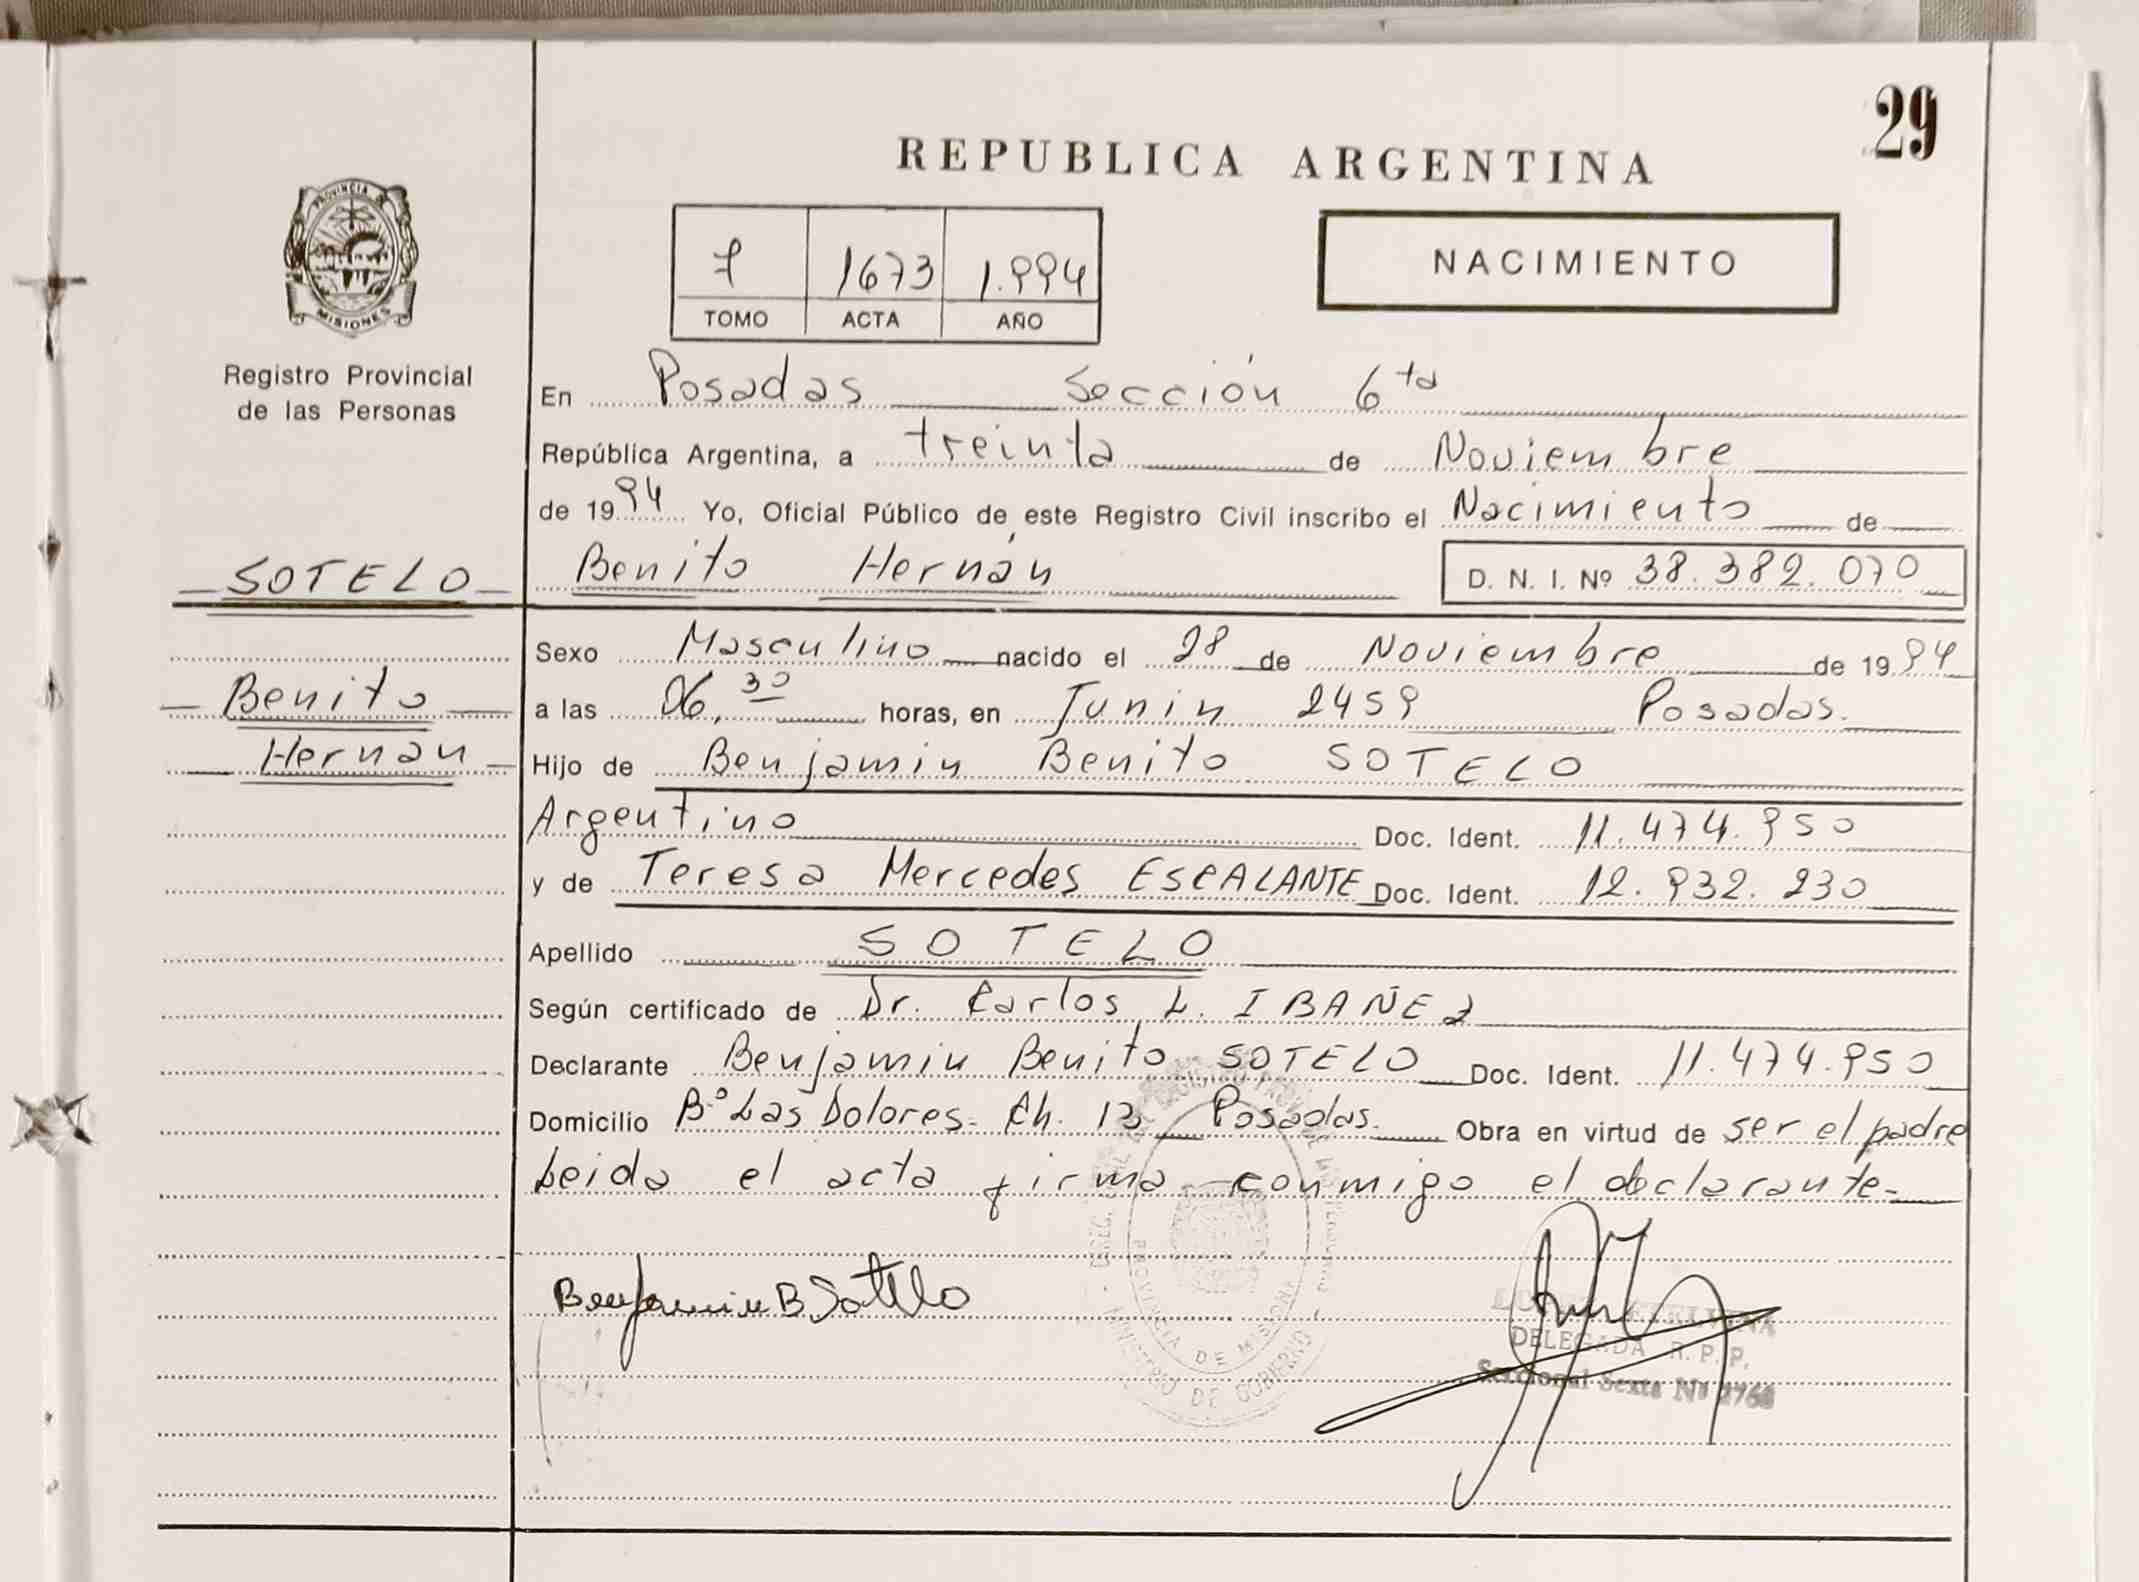 29
REPUBLICA ARGENTINA
PROVINCIA DE
MISIONES
7 1673 1.994
TOMO ACTA AÑO
NACIMIENTO
Registro Provincial
de las Personas
En Posadas Sección 6ta
República Argentina, a treinta de Noviembre
de 1994 Yo, Oficial Público de este Registro Civil inscribo el Nacimiento de
SOTELO Benito Hernán D. N. I. Nº 38.382.070
Sexo Masculino nacido el 28 de Noviembre de 1994
Benito a las 06,30 horas, en Junin 2459 Posadas.
Hernan Hijo de Benjamin Benito SOTELO
Argentino Doc. Ident. 11.474.950
y de Teresa Mercedes ESCALANTE Doc. Ident. 12.932.230
Apellido SOTELO
Según certificado de Dr. Carlos L. IBAÑEZ
Declarante Benjamin Benito SOTELO Doc. Ident. 11.474.950
Domicilio Bº Las Dolores- Ch. 13 Posadas. Obra en virtud de ser el padre
Leida el acta firma conmigo el declarante-
Benjamin B Sotelo
ETELVINA
DELEGADA R. P. P.
Seccional Sexta Nº 2768
PROVINCIA DE MISIONES
MINISTERIO DE GOBIERNO